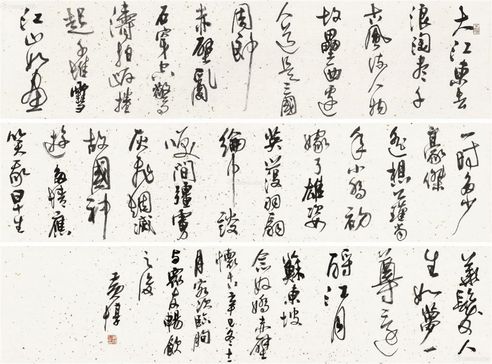 大江東去
浪淘盡千
古風流人物
故壘西邊
人道是三國
周郎
赤壁亂
石穿空驚
濤拍岸捲
起千堆雪
江山如畫
一時多少
豪傑
遙想公瑾當
年小喬初
嫁了雄姿
英發羽扇
綸巾談
笑間彊虜
灰飛煙滅
故國神
遊多情應
笑我早生
華髮人
生如夢一
尊還
酹江月
蘇東坡
念奴嬌赤壁
懷古辛巳冬十
月客次臨朐
與眾友暢飲
之後
黃惇